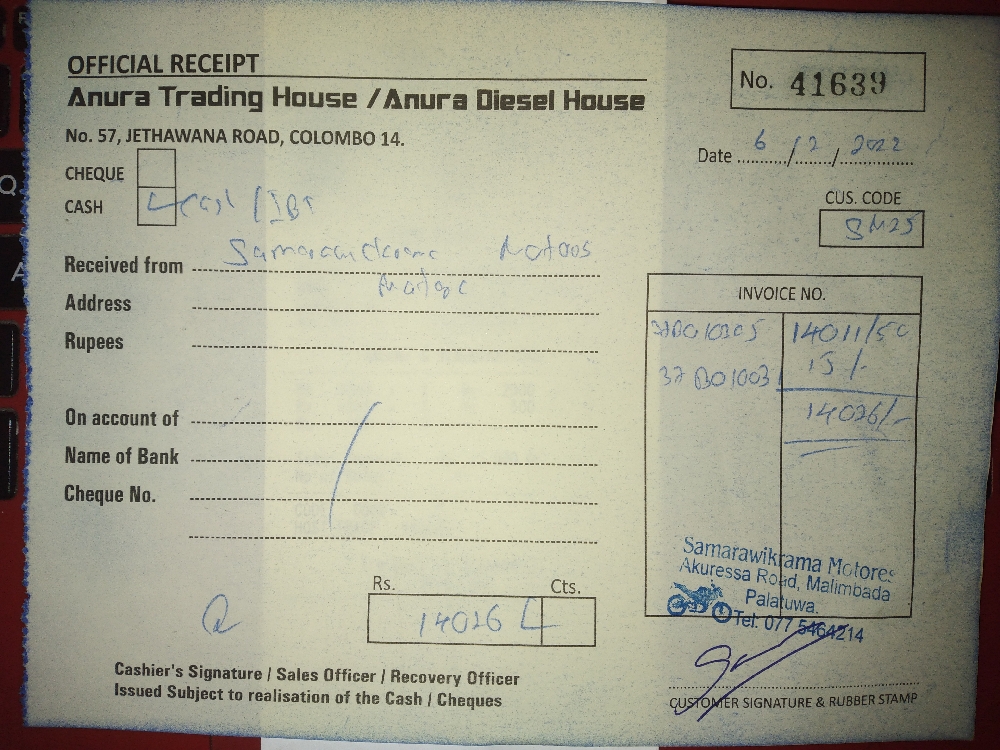 OFFICIAL RECEIPT
Anura Trading House / Anura Diesel House
No. 57, JETHAWANA ROAD, COLOMBO 14.
No. 41639
Date 6/2/2022
CHEQUE
CASH cash / IBT
CUS. CODE
SM25
Received from
Address
Rupees
On account of
Name of Bank
Cheque No.
INVOICE NO.
14011/50
37B01003 15/-
14026/-
Samarawikrama Motores
Akuressa Road, Malimbada
Palatuwa.
Tel: 077 5464214
Rs. Cts.
14026
Cashier's Signature / Sales Officer / Recovery Officer
Issued Subject to realisation of the Cash / Cheques
CUSTOMER SIGNATURE & RUBBER STAMP